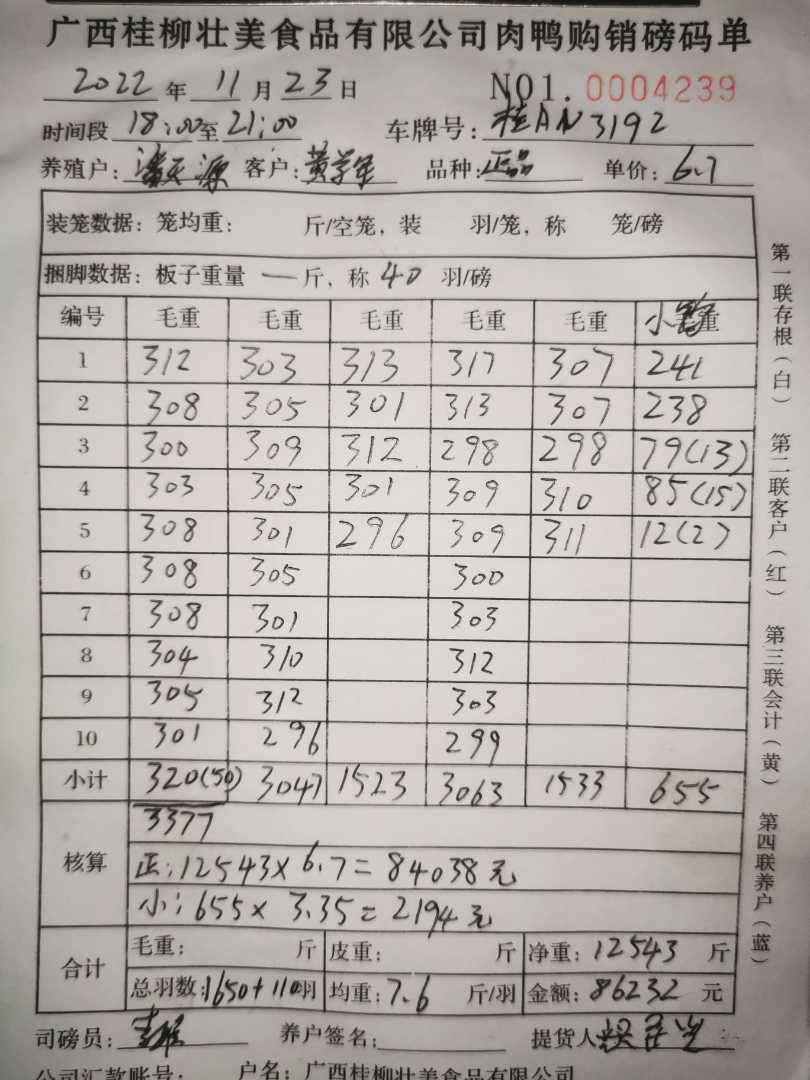 广西桂柳壮美食品有限公司肉鸭购销磅码单
2022 年 11 月 23 日 NO1. 0004239
时间段 18:00至 21:00 车牌号: 桂AN3192
养殖户: 潘天源 客户: 黄学军 品种: 正品 单价: 6.7
装笼数据: 笼均重: 斤/空笼, 装 羽/笼, 称 笼/磅
捆脚数据: 板子重量 一 斤, 称 40 羽/磅
编号 毛重 毛重 毛重 毛重 毛重 小 重
1 312 303 313 317 307 241
2 308 305 301 313 307 238
3 300 309 312 298 298 79(13)
4 303 305 301 309 310 85(15)
5 308 301 296 309 311 12(2)
6 308 305 300
7 308 301 303
8 304 310 312
9 305 312 303
10 301 296 299
小计 320(50) 3047 1523 3063 1533 655
核算 3377
正: 12543 x 6.7 = 84038 元
小: 655 x 3.35 = 2194 元
合计 毛重: 斤 皮重: 斤 净重: 12543 斤
总羽数: 1650+110羽 均重: 7.6 斤/羽 金额: 86232 元
司磅员: 养户签名: 提货人
公司汇款账号: 户名: 广西桂柳壮美食品有限公司
第一联存根(白) 第二联客户(红) 第三联会计(黄) 第四联养户(蓝)